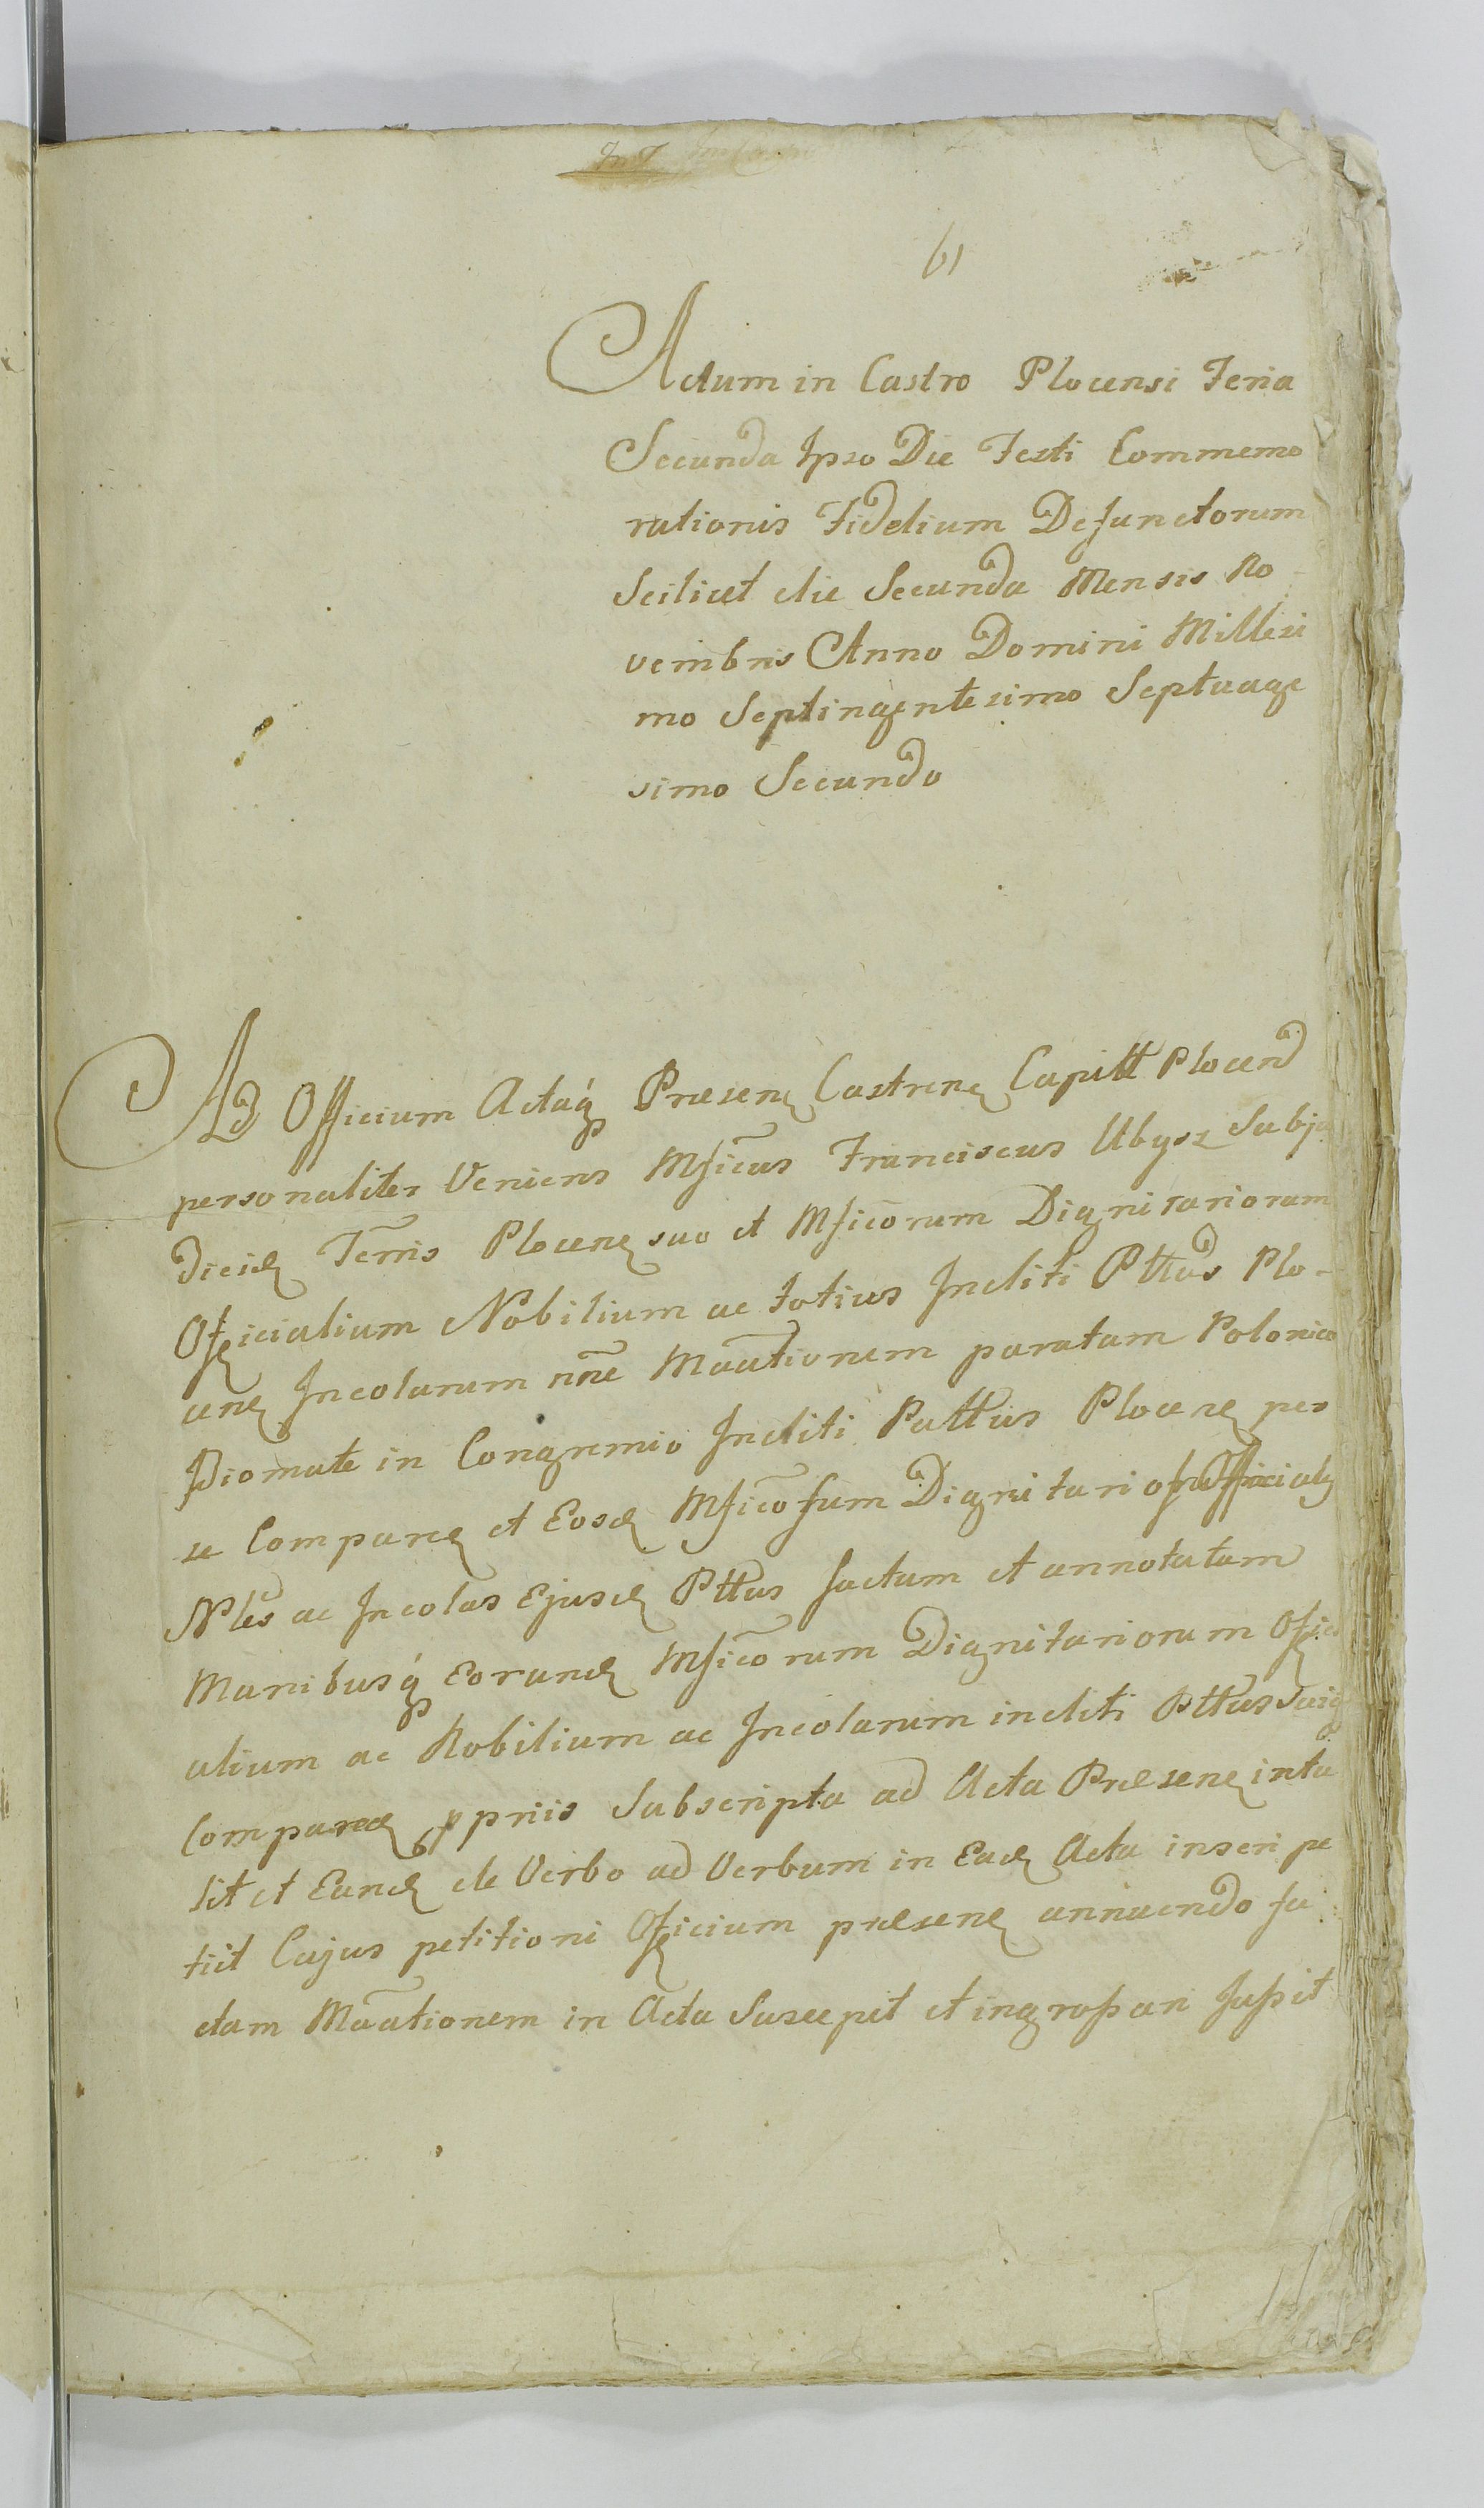 61
Actum in Castro Plocensi Feria
Secunda Ipso Die Festi Commemo
rationis Fidelium Defunctorum
Scilicet die Secunda Mensis No
vembris Anno Domini Millesi
mo Septingentesimo Septuage
simo Secundo
AD Officium Actaq́ Præsen Castren Capitt Plocen
personaliter Veniens Mficus Franciscus Ubysz Subju
Dicid Terris Plocen suo et Mficorum Dignitariorum
Officialium Nobilium ac totius Incliti Pttus Plo-
cen Incolarum nñe Maãtionem paratam Polonico
Idiomate in Congremio Incliti Pattus Plocen per
se Comparen et Eosd Mficorum Dignitarior Official
Nles ac Incolas Ejusd Pttus factam et annotatam
Manibusq́ Eorund Mficorum Dignitariorum Offici
alium ac Nobilium ac Incolarum incliti Pttus Suiq
Compared ppriis Subscripta ad Acta Præsen intu
lit et Eand de Verbo ad Verbum in Ead Acta inseri pe
tiit Cujus petitioni Officium præsens annuendo fa
ctam Maãtionem in Acta Suscepit et ingrossari Jussit